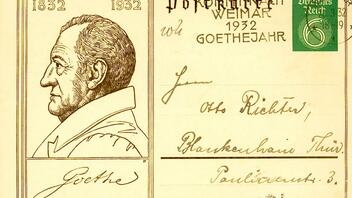 1832 1932
Postkarte
WEIMAR
1932
GOETHEJAHR
Deutsches
Reich
6
Herrn
Otto Richter,
Blankenhain Thür.
Paulinenstr. 3.
Goethe